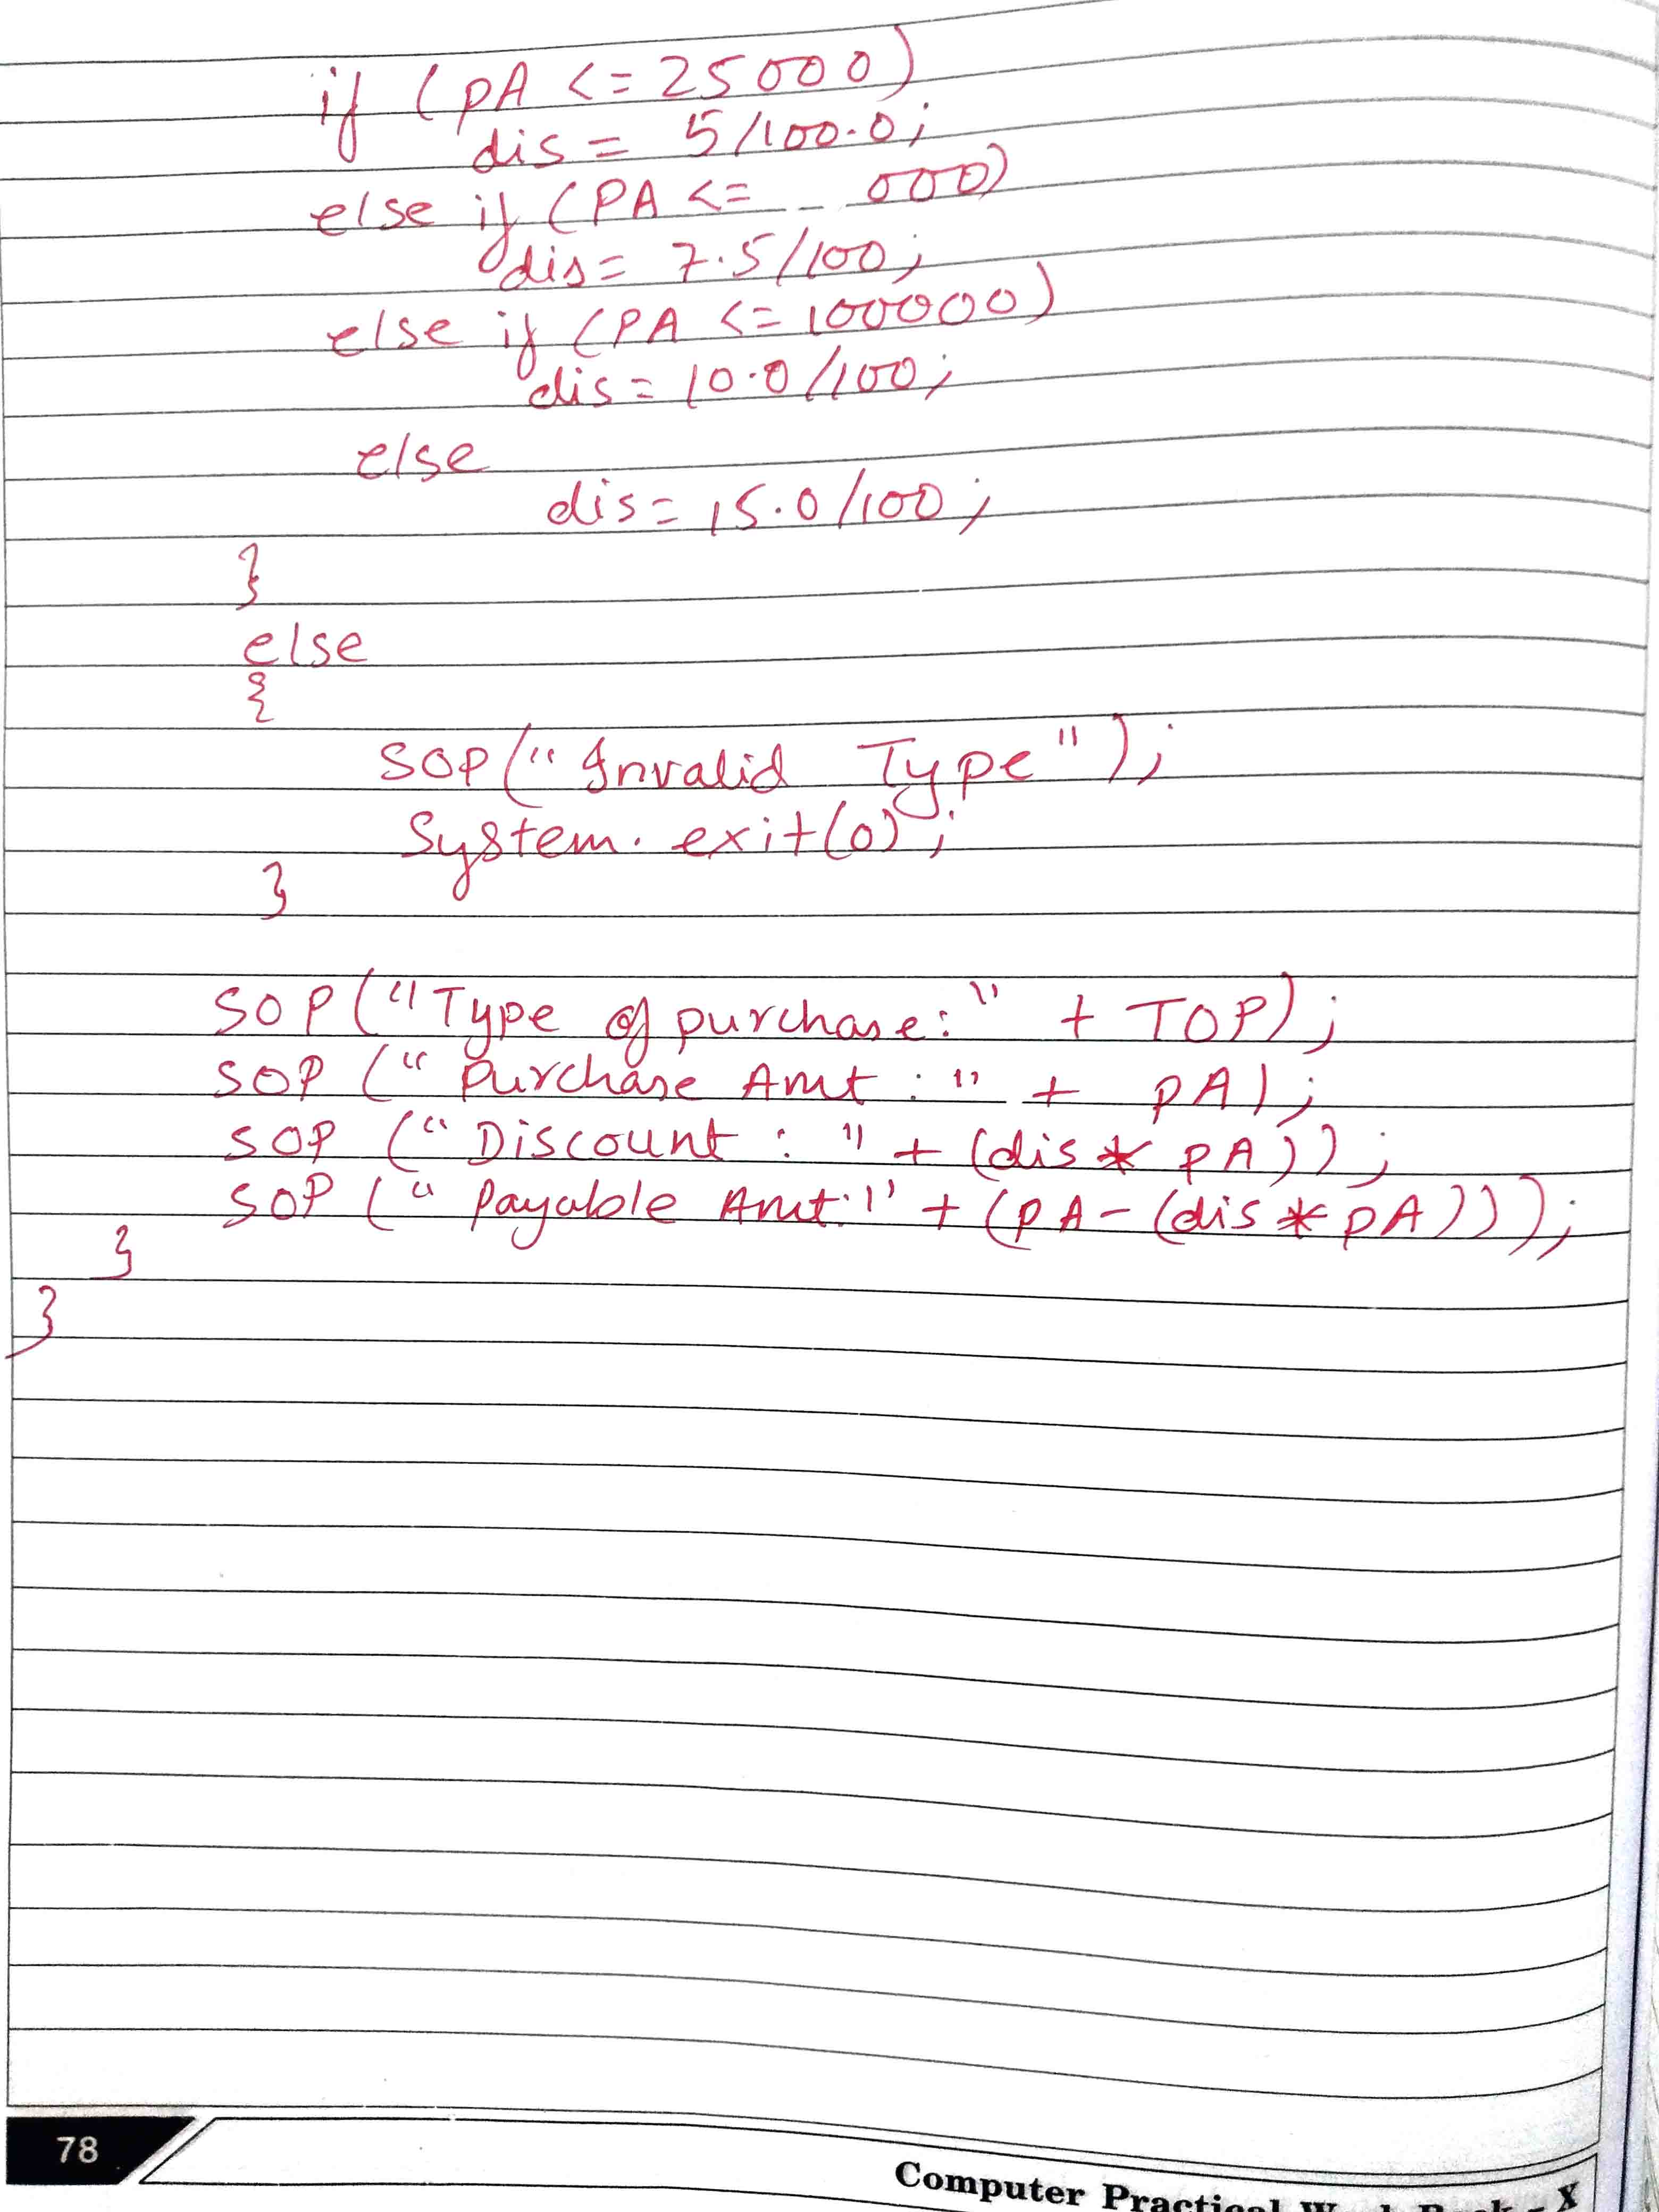 if (PA <= 25000)
dis = 5/100.0;
else if (PA <= 000)
dis = 7.5/100;
else if (PA <= 100000)
dis = 10.0/100;
else
dis = 15.0/100;
}
else
{
SOP("Invalid Type");
System.exit(0);
}
SOP("Type of purchase:" + TOP);
SOP ("Purchase Amt :" + PA);
SOP ("Discount : " + (dis * PA));
SOP ("Payable Amt:" + (PA - (dis * PA)));
}
}
78
Computer Practical - X